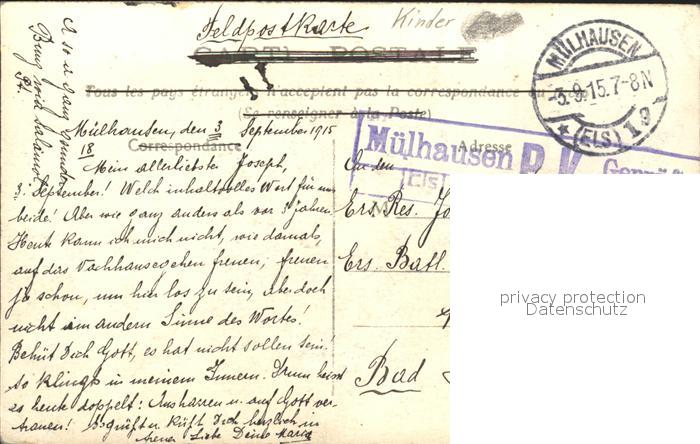 Feldpostkarte
Kinder
CARTE POSTALE
Tous les pays étrangers n'acceptent pas la correspondance au
(Se renseigner à la Poste)
Mülhausen, den 3. September 1915
18
Correspondance
Adresse
MÜLHAUSEN
-3.9.15.7-8N
* (ELS) 1 g
Mülhausen P. K.
(Els
Mein allerliebster Joseph,
3. September! Welch inhaltvolles Wort für uns
beide! Aber wie ganz anders als vor 3 Jahren
Heute kann ich mich nicht, wie damals,
auf das Nachhausegehen freuen; freuen
ja schon, um hier los zu sein, aber doch
nicht im andern Sinne des Wortes!
Behüt Dich Gott, es hat nicht sollen sein!
so klingt in meinem Innern. Drum heisst
es heute doppelt: Ausharren u. auf Gott ver-
trauen! Es grüßt u. küßt Dich herzlich in
treuer Liebe Deine Maria
An den
Ers. Res. Jo
Ers. Batl.
Bad
privacy protection
Datenschutz